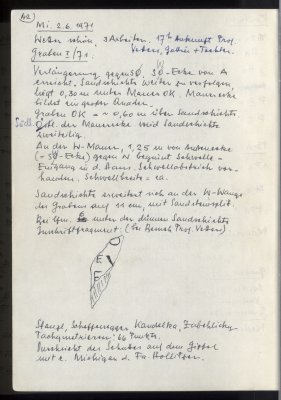 42
Mi. 2.6.1971
Wetter schön, 3 Arbeiter. 17h Ankunft Prof.
Vetters, Gattin + Tochter.
Graben I/71:
Verlängerung gegen SO, SO-Ecke von A
erreicht. Sandschichte weiter zu verfolgen,
liegt 0,30 m unter Mauer OK. Mauerecke
bildet ein großer Quader.
Graben OK = ~ 0,60 m über Sandschichte
Südl. der Mauerecke wird Sandschichte
zweiteilig.
An der W-Mauer, 1,25 m von Außenecke
(= SW-Ecke) gegen N beginnt Schwelle -
Eingang in d. Haus. Schwellabstrich vor-
handen. Schwellbreite = ca.
Sandschichte erweitert sich an der W-Wange
des Grabens auf 11 cm, mit Sandsteinsplit.
Bei lfm. 6 unter der dünnen Sandschichte
Inschriftfragment. (bei Besuch Prof. Vetters)
Stenzl, Schaffenegger Kandelka,
Tachymetrieren: 66 Punkte.
des Schuttes auf dem Gipfel
mit e. Michigan d. Fa. Hollitzer.